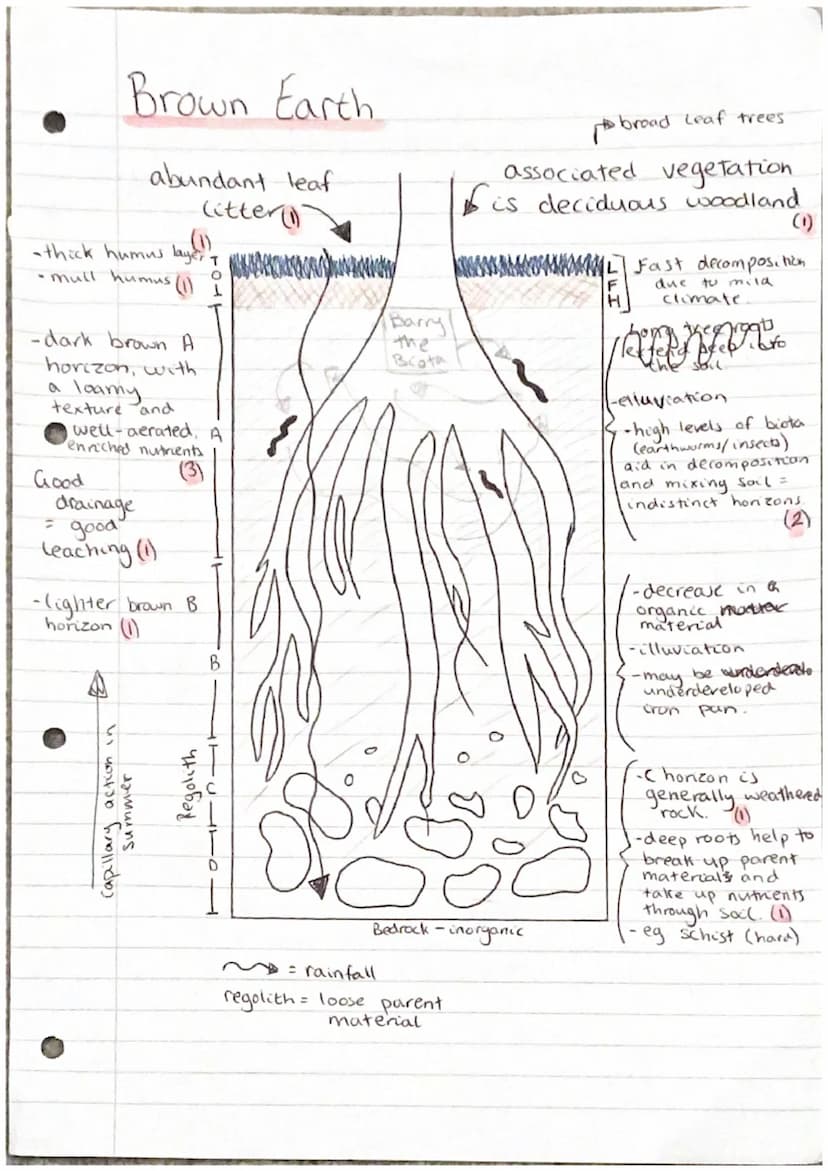 Brown Earth
broad leaf trees
abundant leaf
litter (1)
associated vegetation
is deciduous woodland
(1)
-thick humus layer (1)
- mull humus (1)
T
O
1
L
F
H
Fast decomposition
due to mild
climate.
Barry
the
Biota
-dark brown A
horizon, with
a loamy
texture and
well-aerated,
enriched nutrients
(3)
A
Good
drainage
= good
leaching (1)
long tree roots
extend deep into
the soil
-elluviation
-high levels of biota
(earthworms/insects)
aid in decomposition
and mixing soil =
indistinct horizons
(2)
-lighter brown B
horizon (1)
B
-decrease in
organic matter
material
-illuviation
-may be
underdeveloped
iron pan.
capillary action in
summer
Regolith
C
D
-C horizon is
generally weathered
rock. (1)
-deep roots help to
break up parent
materials and
take up nutrients
through soil. (1)
- eg schist (hard)
Bedrock - inorganic
= rainfall
regolith = loose parent
material